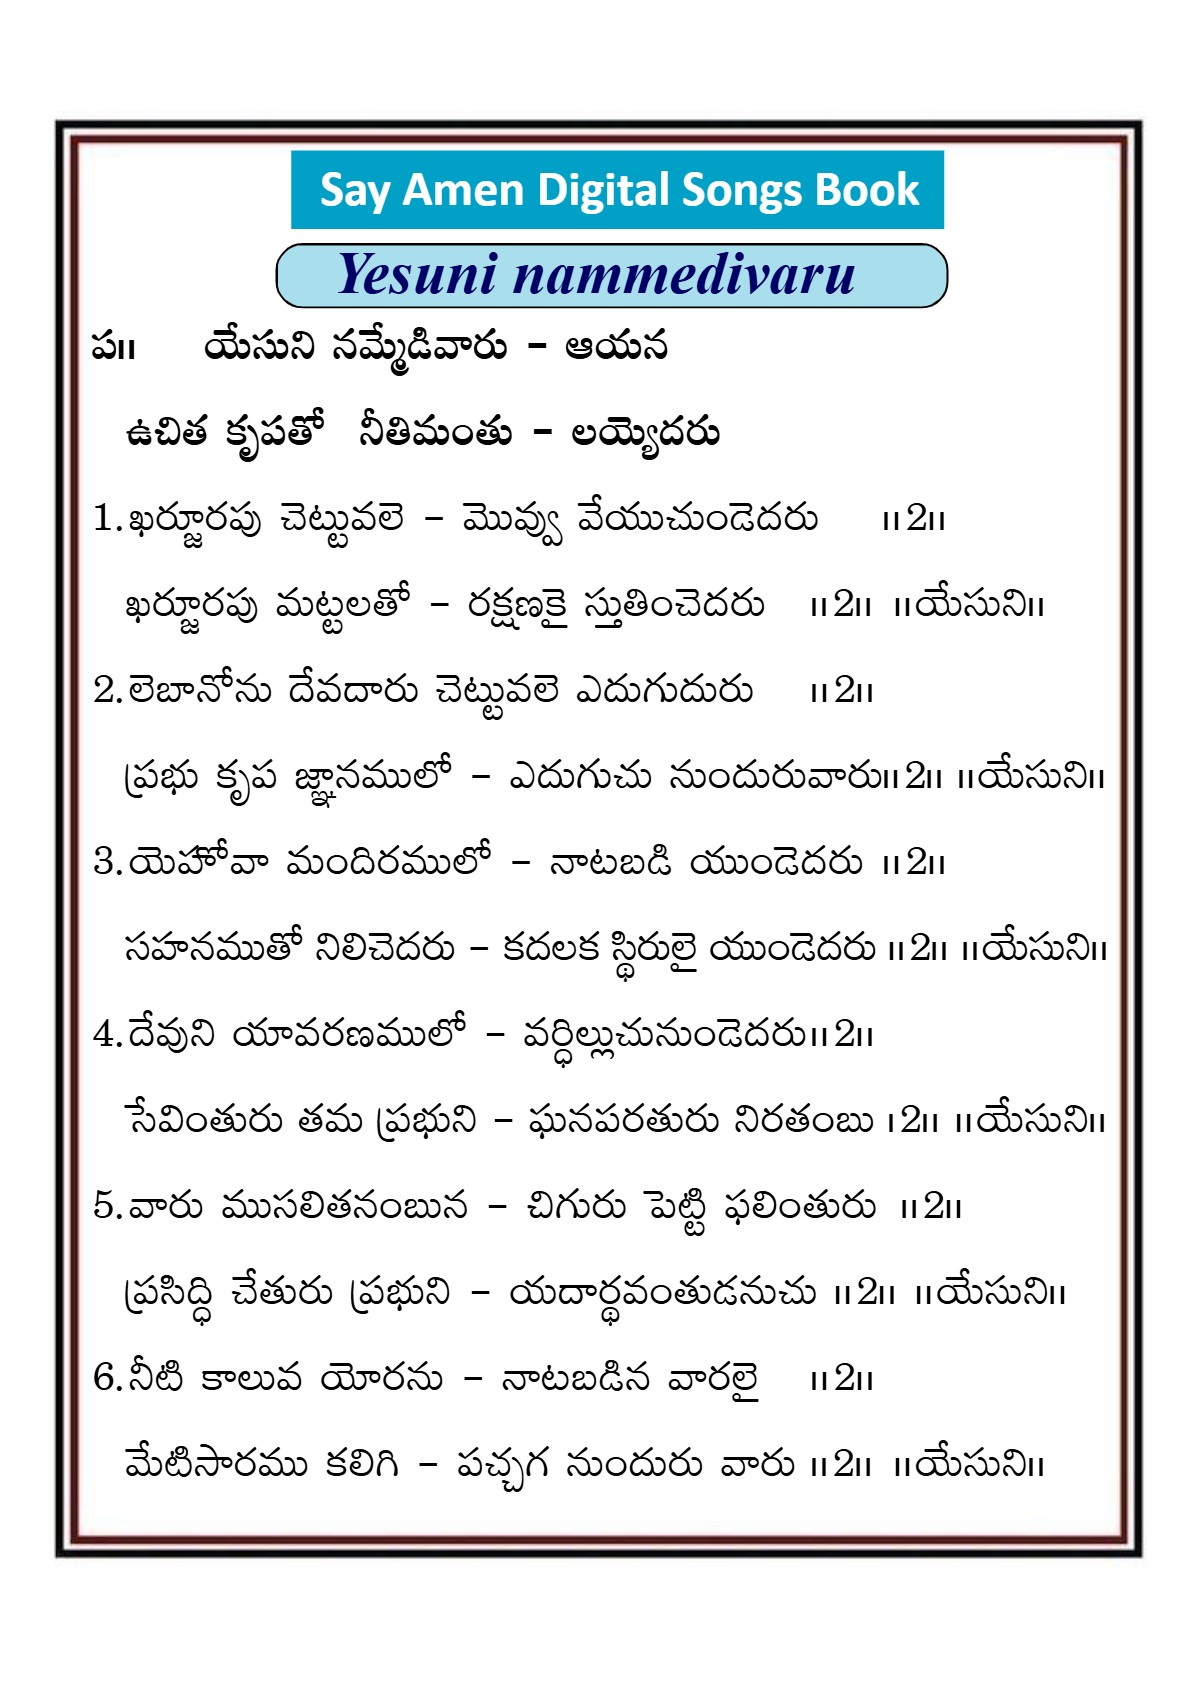 Say Amen Digital Songs Book
Yesuni nammedivaru
ప॥ యేసుని నమ్మేడివారు - ఆయన
ఉచిత కృపతో నీతిమంతు - లయ్యెదరు
1. ఖర్జూరపు చెట్టువలె - మొవ్వు వేయుచుండెదరు ॥2॥
ఖర్జూరపు మట్టలతో - రక్షణకై స్తుతించెదరు ॥2॥ ॥యేసుని॥
2. లెబానోను దేవదారు చెట్టువలె ఎదుగుదురు ॥2॥
ప్రభు కృప జ్ఞానములో - ఎదుగుచు నుందురువారు॥2॥ ॥యేసుని॥
3. యెహోవా మందిరములో - నాటబడి యుండెదరు ॥2॥
సహనముతో నిలిచెదరు - కదలక స్థిరులై యుండెదరు ॥2॥ ॥యేసుని॥
4. దేవుని యావరణములో - వర్ధిల్లుచునుండెదరు॥2॥
సేవింతురు తమ ప్రభుని - ఘనపరతురు నిరతంబు ।2॥ ॥యేసుని॥
5. వారు ముసలితనంబున - చిగురు పెట్టి ఫలింతురు ॥2॥
ప్రసిద్ధి చేతురు ప్రభుని - యదార్థవంతుడనుచు ॥2॥ ॥యేసుని॥
6. నీటి కాలువ యోరను - నాటబడిన వారలై ॥2॥
మేటిసారము కలిగి - పచ్చగ నుందురు వారు ॥2॥ ॥యేసుని॥